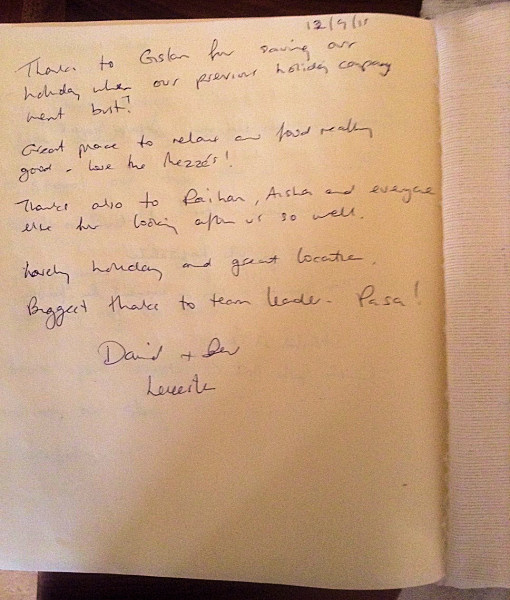 12/9/11
Thanks to Goskan for saving our
holiday when our previous holiday company
went bust!
Great place to relax and food really
good - love the Mezzés!
Thanks also to Raihan, Aisha and everyone
else for looking after us so well.
Lovely holiday and great location.
Biggest thanks to team leader - Pasa!
David +